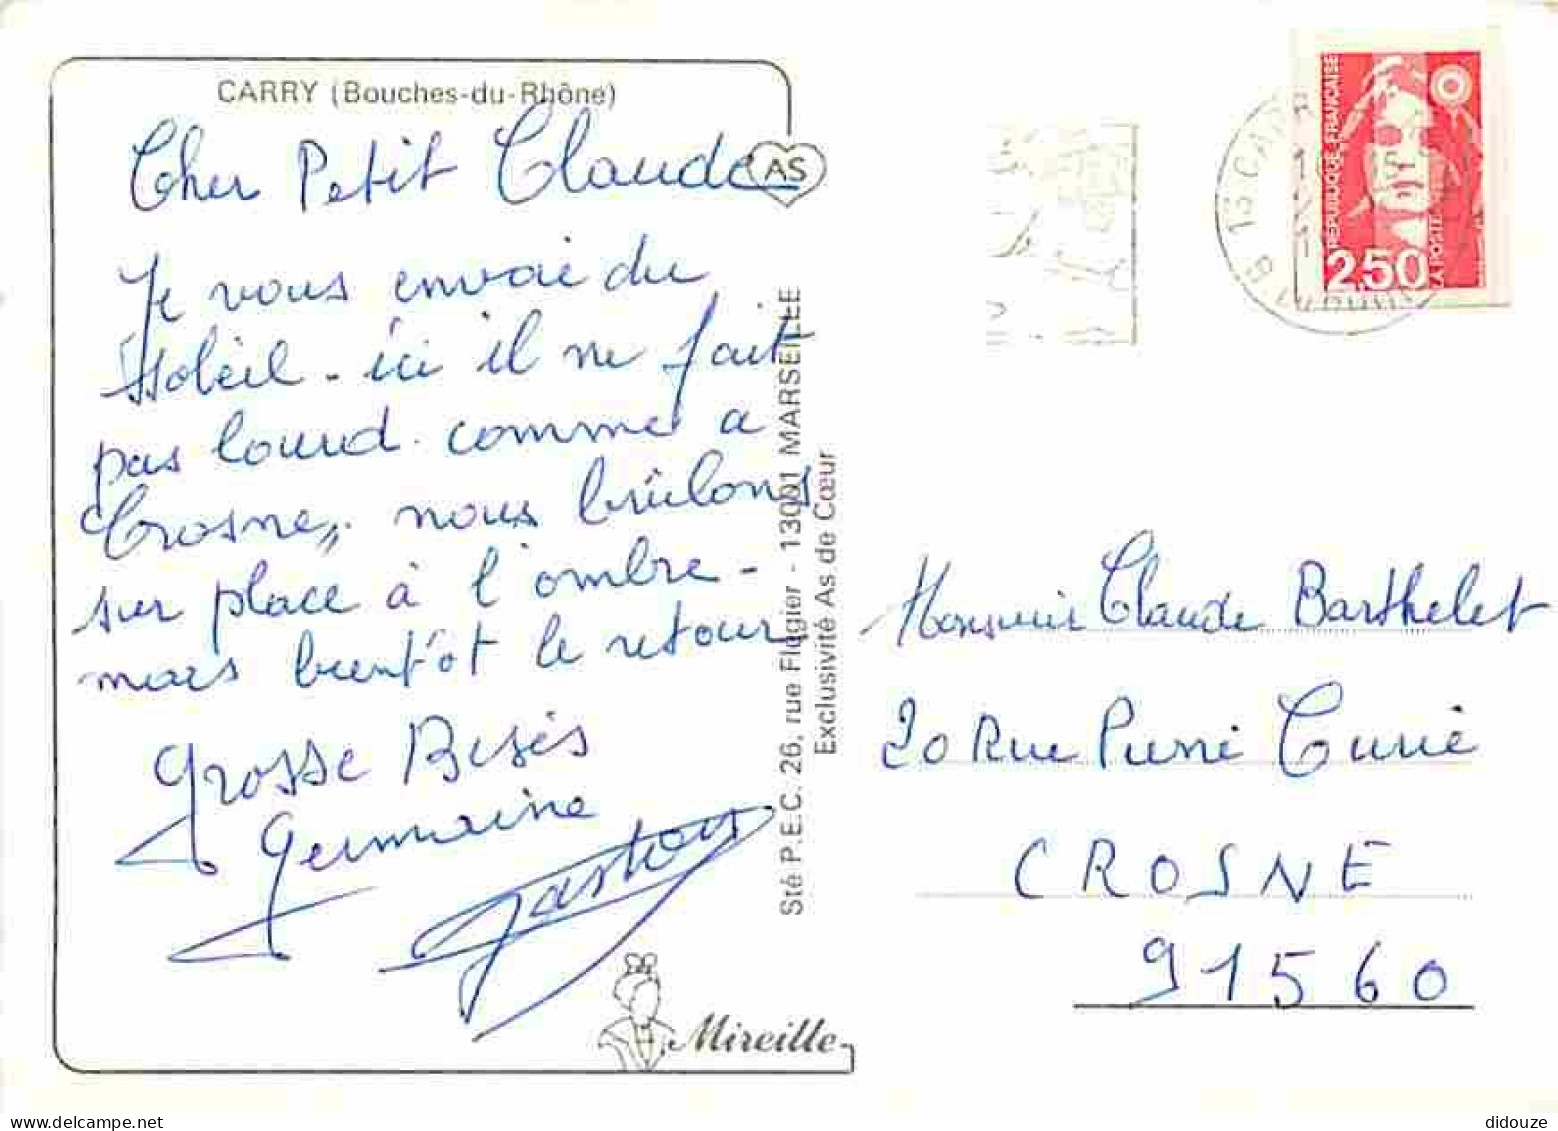 CARRY (Bouches-du-Rhône)
Cher Petit Claude
AS
Je vous envoie du
soleil - ici il ne fait
pas lourd comme a
Crosne, nous brûlons
sur place à l'ombre -
mais bientôt le retour
Grosse Bises
Germaine
Gaston
Mireille
Sté P.E.C. 26, rue Flégier - 13001 MARSEILLE
Exclusivité As de Cœur
RÉPUBLIQUE FRANÇAISE
2,50
LA POSTE
Monsieur Claude Barthelet
20 Rue Pierre Curie
CROSNE
91560
didouze